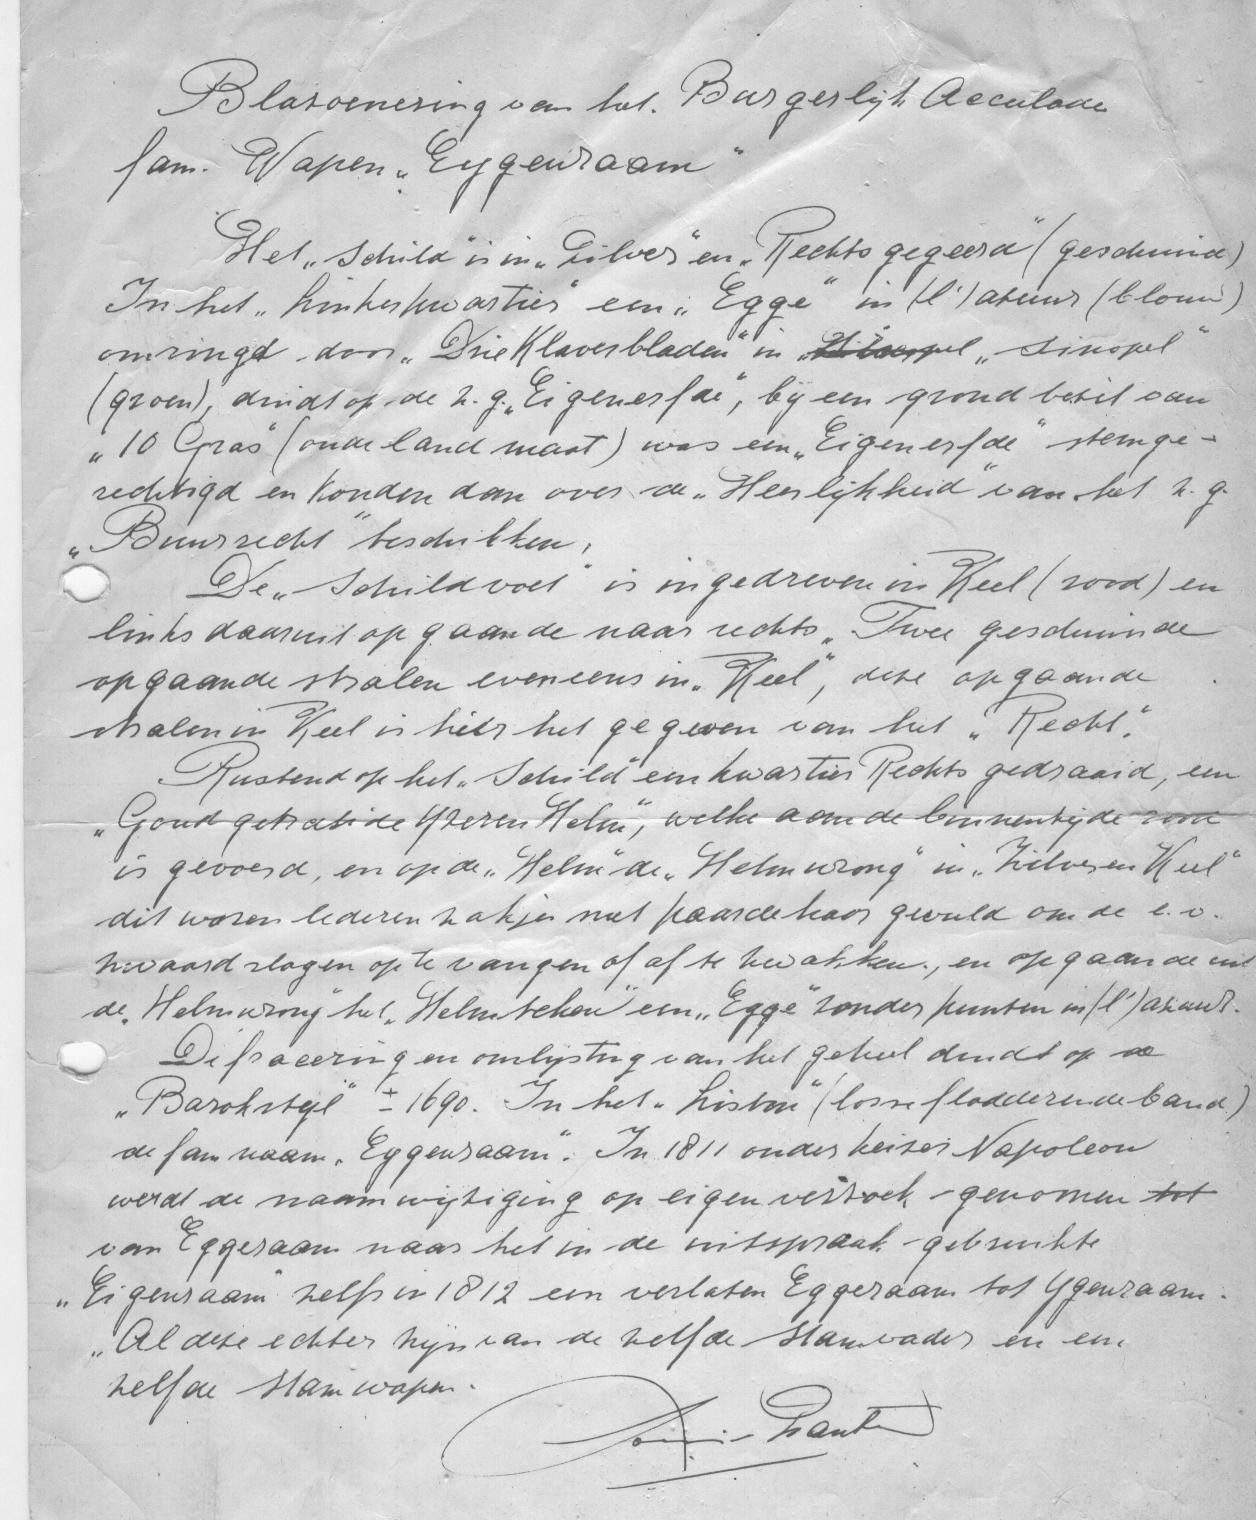 Blazoenering van het. Burgerlijk Accolade
fam. Wapen „Eygenraam"
Het „Schild" is in „Zilver" en „Rechts gegeerd" (geschuind)
In het „Linkerkwartier" een „Egge" in (l')azuur (blouw)
omringd door „Drie Klaverbladen" in „Sinopel"
(groen), duidt op de z.g. „Eigenerfde", bij een grond bezit van
„10 Gras" (oude land maat) was een „Eigenerfde" stemge-
rechtigd en konden dan over de „Heerlijkheid" van het z.g.
„Buurrecht" beschikken,
De „Schildvoet" is ingedreven in Keel (rood) en
links daaruit opgaande naar rechts „Twee geschuinde
opgaande stralen eveneens in „Keel", deze opgaande
stralen in Keel is hier het gegeven van het „Recht".
Rustend op het „Schild" een kwartier Rechts gedraaid, een
„Goud getraliede Yzeren Helm", welke aan de binnenzijde rood
is gevoerd, en op de „Helm" de „Helmwrong" in „Zilver en Keel"
dit waren lederen zakjes met paardehaar gevuld om de e.v.
zwaardslagen op te vangen of af te zwakken., en opgaande uit
de „Helmwrong" het „Helmteken" een „Egge" zonder punten in (l')azuur.
De facering en omlijsting van het geheel duidt op de
„Barokstijl" ± 1690. In het „Listou" (losse fladderende band)
de fam naam „Eygenraam". In 1811 onder keizer Napoleon
werdt de naamwijziging op eigen verzoek genomen tot
van Eggeraam naar het in de uitspraak gebruikte
„Eigenraam" zelfs in 1812 een verlaten Eggeraam tot Ygenraam.
„Al deze echter zijn van de zelfde Stamvader en een
zelfde Stamwapen.